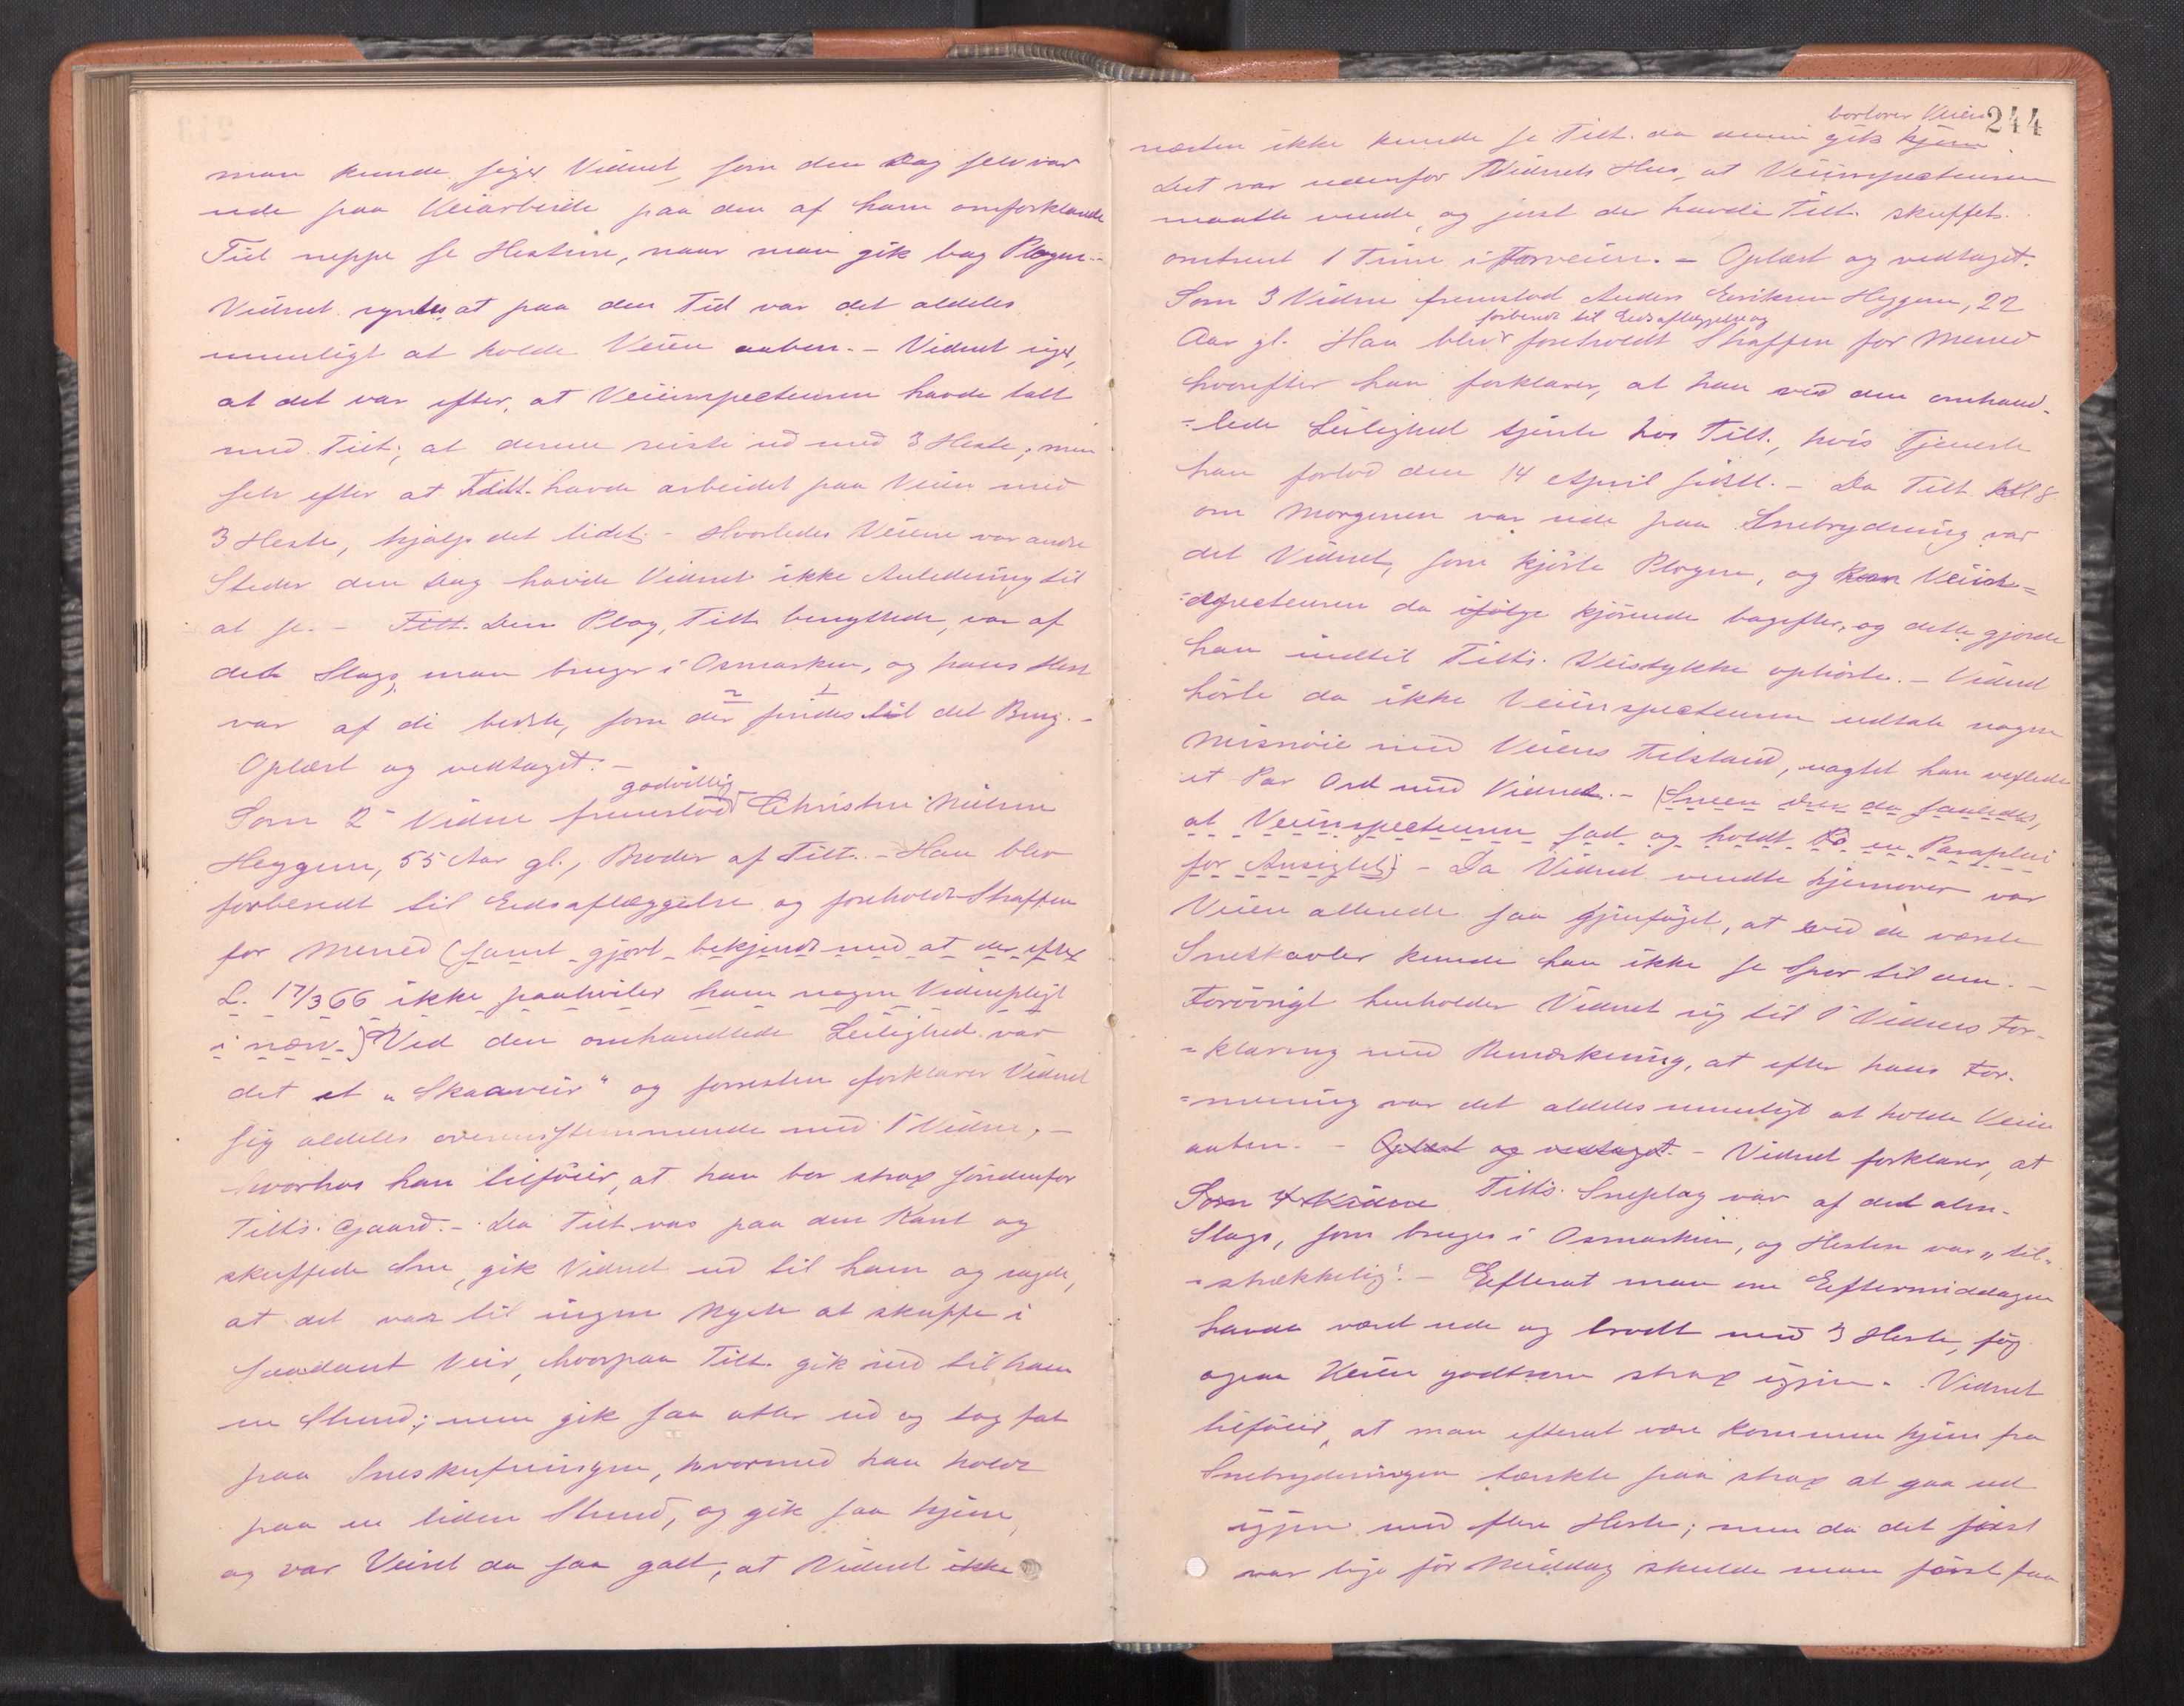 man kunde, siger Vidnet, som den Dag selv var
ude paa Veiarbeide paa den af ham omforklarede
Tid neppe se Hestene, naar man gik bag Plogen. -
Vidnet syntes at paa den Tid var det aldeles
umuligt at holde Veien aaben. - Vidnet siger,
at det var efter, at Veiinspecteuren havde talt
med Tilt., at denne reiste ud med 3 Heste; men
selv efter at Tilt. havde arbeidet paa Veien med
3 Heste, hjalp det lidet. - Hvorledes Veiene var andre
Steder den Dag havde Vidnet ikke Anledning til
at se. - Tilt. Den Plog, Tilt. benyttede, var af
det Slags, man bruger i Osmarken, og hans Hest
var af de bedste, som der findes til det Brug. -
Oplæst og vedtaget. -
godvillig
Som 2 Vidne fremstod Christen Nielsen
Heggem, 55 Aar gl., Broder af Tilt. - Han blev
forberedt til Eedsaflæggelse og foreholdt Straffen
for Mened (samt gjort bekjendt med at der efter
L. 17/3 66 ikke paahviler ham nogen Vidnepligt
i nærv.) Ved den omhandlede Leilighed var
det et "Skaaveir" og forresten forklarer Vidnet
sig aldeles overensstemmende med 1 Vidne, -
hvorhos han tilføier, at han bor strax søndenfor
Tilts. Gaard. - Da Tilt. var paa den Kant og
skuffede Sne, gik Vidnet ud til ham og sagde,
at det var til ingen Nytte at skuffe i
saadant Veir, hvorpaa Tilt. gik ind til ham
en Stund; men gik saa atter ud og tog fat
paa Sneskufningen, hvormed han holdt
paa en liden Stund, og gik saa hjem,
og var Veiret da saa galt, at Vidnet ikke
244
bortover Veien
næsten ikke kunde se Tilt. da denne gik hjem
Det var udenfor Vidnets Hus, at Veiinspecteuren
maatte vende, og just der havde Tilt. skuffet
omtrent 1 Time i Forveien. - Oplæst og vedtaget.
Som 3 Vidne fremstod Anders Eriksen Heggem, 22
forberedt til Eedsaflæggelse og
Aar gl. Han blev foreholdt Straffen for Mened
hvorefter han forklarer, at han ved den omhand-
=lede Leilighed tjente hos Tilt., hvis Tjeneste
han forlod den 14 April sidstl. - Da Tilt. Kl 8
om Morgenen var ude paa Snebrydning var
det Vidnet, som kjørte Plogen, og Veiin=
=specteuren da ifølge kjørende bagefter, og dette gjorde
han indtil Tilts. Veistykke ophørte. - Vidnet
hørte da ikke Veiinspecteuren udtale nogen
Misnøie med Veiens Tilstand, uagtet han vexlede
et Par Ord med Vidnet. - (Sneen drev da saaledes,
at Veiinspecteuren sad og holdt en Paraplui
for Ansigtet). - Da Vidnet vendte hjemover var
Veien allerede saa gjenføget, at ved de værste
Sneskavler kunde han ikke se Spor til den. -
Forøvrigt henholder Vidnet sig til 1 Vidnes For-
=klaring med Bemærkning, at efter hans For-
=mening var det aldeles umuligt at holde Veien
aaben. - Oplæst og vedtaget. - Vidnet forklarer, at
Som 4 Vidne Tilts. Sneplog var af det alm.
Slags, som bruges i Osmarken, og Hesten var "til-
=strækkelig". - Efterat man om Eftermiddagen
havde været ude og brodt med 3 Heste, føg
ogsaa Veien godtsom strax igjen. - Vidnet
tilføier, at man efterat være kommen hjem fra
Snebrydningen tænkte paa strax at gaa ud
igjen med flere Heste; men da det just
var lige før Middag skulde man først faa